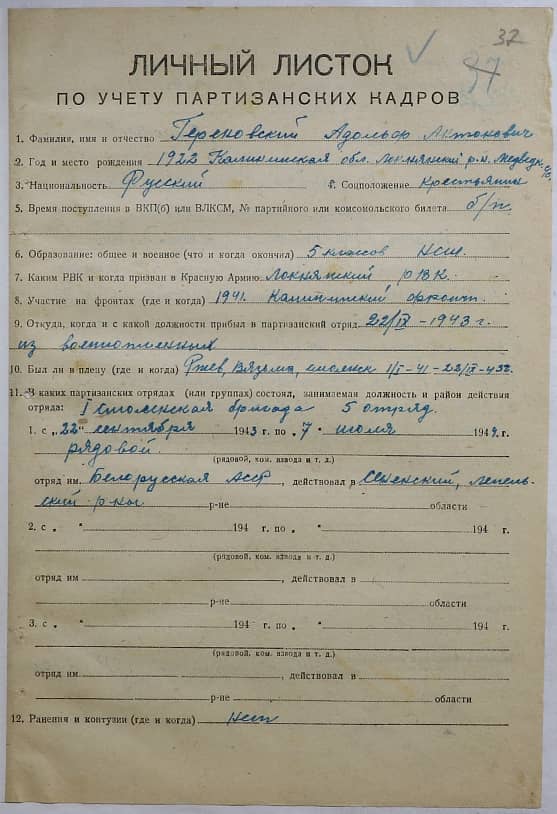 32
37
ЛИЧНЫЙ ЛИСТОК
ПО УЧЕТУ ПАРТИЗАНСКИХ КАДРОВ
1. Фамилия, имя и отчество Тереховский Адольф Антонович
2. Год и место рождения 1922 Калининская обл. Локнянский р-н.
3. Национальность Русский 4. Соцположение крестьянин
5. Время поступления в ВКП(б) или ВЛКСМ, № партийного или комсомольского билета б/п.
6. Образование: общее и военное (что и когда окончил) 5 классов НСШ.
7. Каким РВК и когда призван в Красную Армию Локнянский РВК.
8. Участие на фронтах (где и когда) 1941. Калининский фронт.
9. Откуда, когда и с какой должности прибыл в партизанский отряд 22/IX-1943 г.
из военнопленных
10. Был ли в плену (где и когда) Ржев, Вязьма, Смоленск 1/I-41-22/IX-43г.
11. В каких партизанских отрядах (или группах) состоял, занимаемая должность и район действия
отряда: I Смоленская бригада 5 отряд.
1. с „22“ сентября 1943 г. по „7“ июля 1944 г.
рядовой.
(рядовой, ком. взвода и т. д.)
отряд им Белорусская АССР, действовал в Сенненский, Лепель-
ский р-ны р-не области
2. с „ “ 194 г. по „ “ 194 г.
(рядовой, ком. взвода и т. д.)
отряд им , действовал в
р-не области
3. с „ “ 194 г. по „ “ 194 г.
(рядовой, ком. взвода и т. д.)
отряд им , действовал в
р-не области
12. Ранения и контузии (где и когда) нет